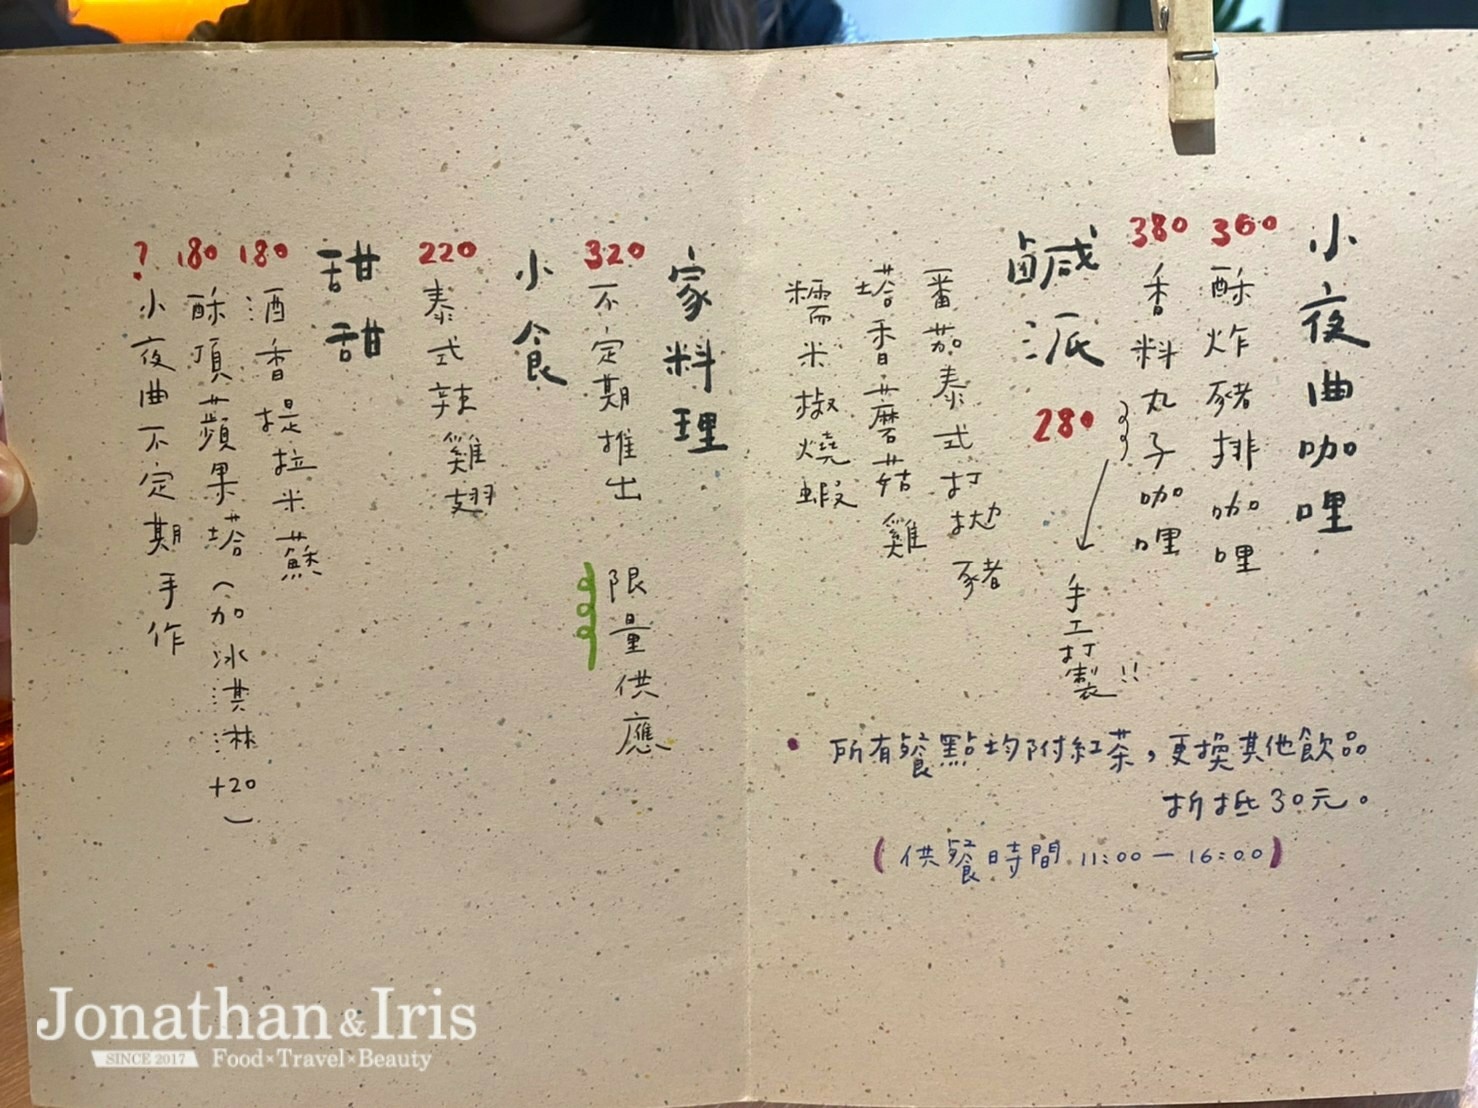 小夜曲咖哩
360
酥炸豬排咖哩
380
香料丸子咖哩
手工打製!!
鹹派
280
番茄泰式打拋豬
塔香蘑菇雞
糯米椒燒蝦
• 所有餐點均附紅茶，更換其他飲品
折抵30元。
(供餐時間 11:00－16:00)
家料理
320
不定期推出
限量供應
小食
220
泰式辣雞翅
甜甜
180
酒香提拉米蘇
180
酥頂蘋果塔(加冰淇淋+20)
?
小夜曲不定期手作
Jonathan & Iris
SINCE 2017
Food×Travel×Beauty